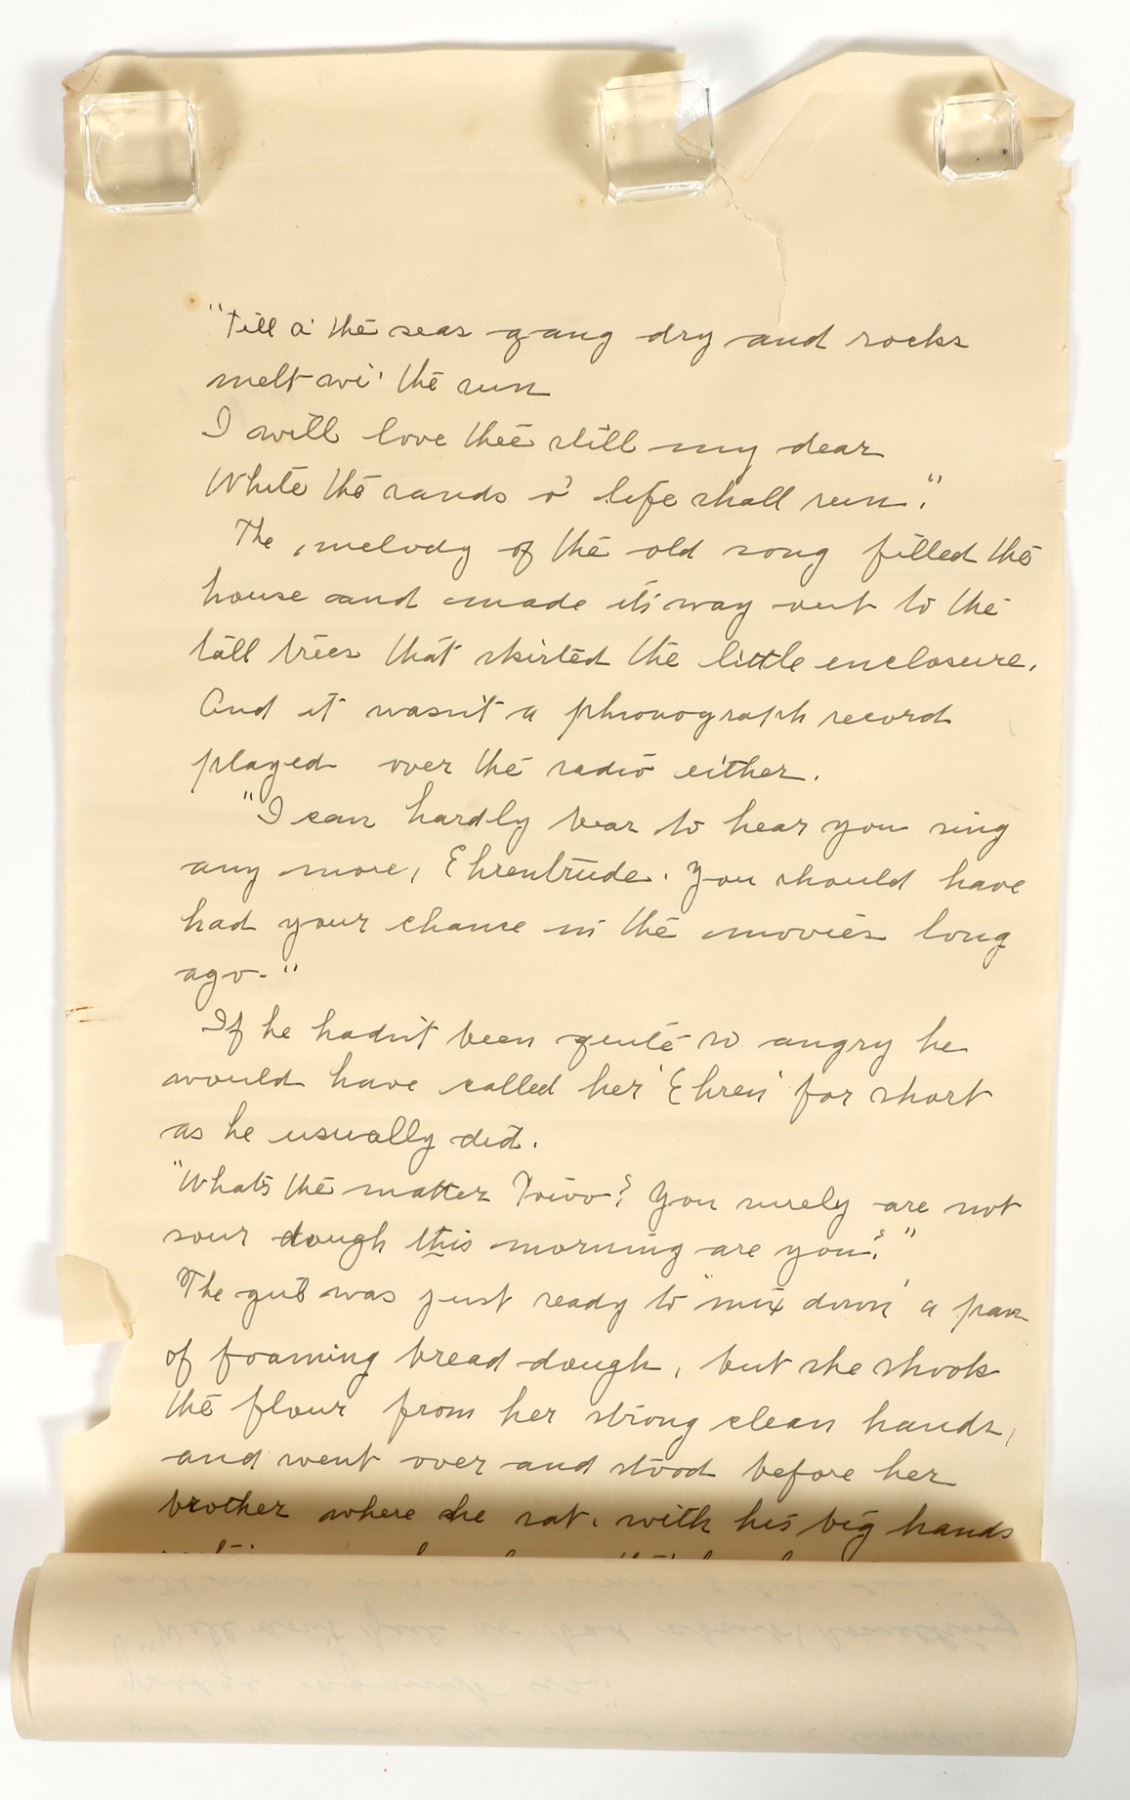 "Till a' the seas gang dry and rocks
melt wi' the sun
I will love thee still my dear
While the sands o' life shall run."
The melody of the old song filled the
house and made its way out to the
tall trees that skirted the little enclosure.
And it wasn't a phonograph record
played over the radio either.
"I can hardly bear to hear you sing
any more, Ehrentrude. You should have
had your chance in the movies long
ago."
If he hadn't been quite so angry he
would have called her 'Ehren' for short
as he usually did.
"What's the matter Toivo? You surely are not
sour dough this morning are you?"
The girl was just ready to "mix down' a pan
of foaming bread dough, but she shook
the flour from her strong clean hands,
and went over and stood before her
brother where he sat, with his big hands